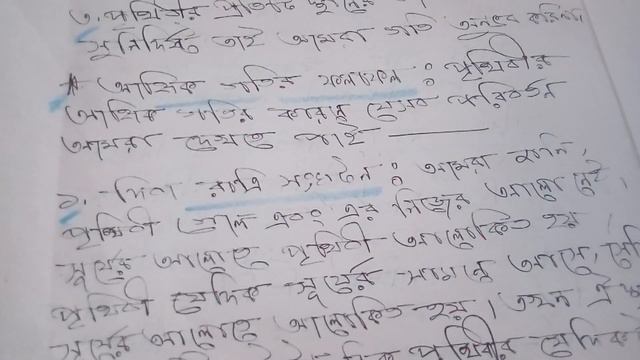 ৩. পৃথিবীর প্রতিটি স্থানের
সুনির্দিষ্ট তাই আমরা গতি অনুভব করিনা।
* আহ্নিক গতির ফলাফল : পৃথিবীর
আহ্নিক গতির কারণে যেসব পরিবর্তন
আমরা দেখতে পাই
১. দিবা রাত্রি সংঘটন : আমরা জানি,
পৃথিবী গোল এবং এর নিজের আলো নেই,
সূর্যের আলোতে পৃথিবী আলোকিত হয়।
পৃথিবী যেদিক সূর্যের সামনে আসে,
সূর্যের আলোতে আলোকিত হয়। তখন ঐ
দিক পৃথিবীর যেদিক